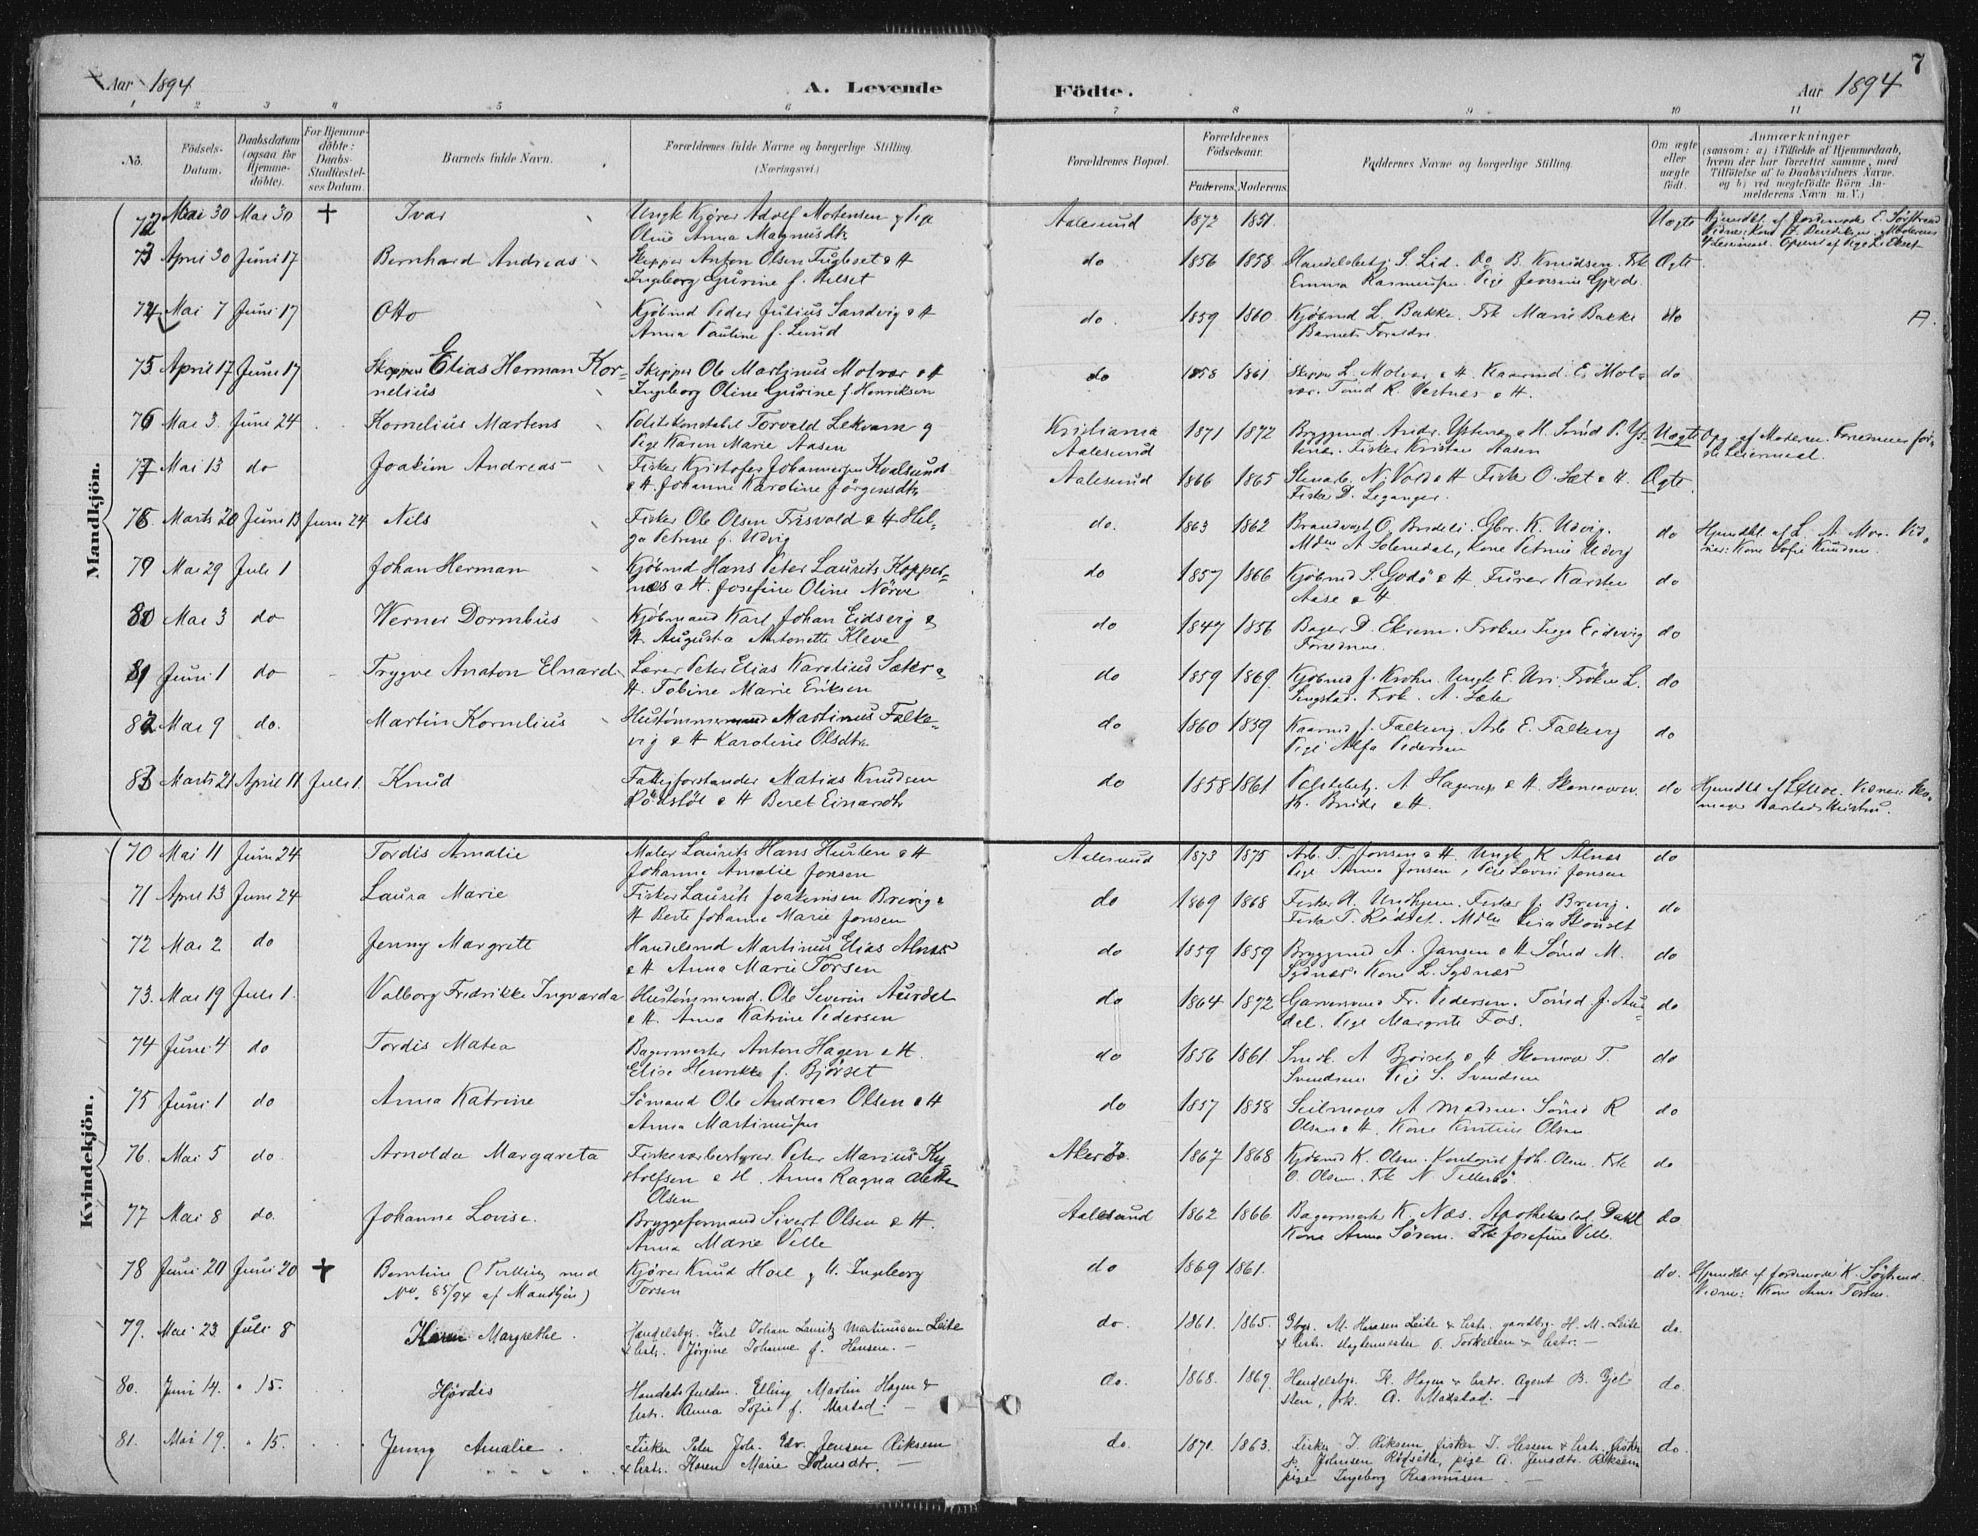 Aar 1894
A. Levende
Födte.
Aar 1894
7
1 2 3 4 5 6 7 8 9 10 11
No.
Födsels-Datum.
Daabsdatum (ogsaa for Hjemme-döbte).
For Hjemme-döbte: Daabs-Stadfæstel-ses Datum.
Barnets fulde Navn.
Forældrenes fulde Navne og borgerlige Stilling. (Næringsvei.)
Forældrenes Bopæl.
Forældrenes Födselsaar.
Faderens. Moderens.
Faddernes Navne og borgerlige Stilling.
Om ægte eller uægte födt.
Anmærkninger
(saasom: a) i Tilfælde af Hjemmedaab, hvem der har forrettet samme, med Tilföielse af to Daabsvidners Navne, og b) ved uægtefödte Börn Anmelderens Navn m. V.)
Mandkjön.
72 Mai 30 Mai 30 + Ivar Ungk Kjører Adolf Motensen g Pige
Oline Anna Magnusdtr Aalesund 1872 1851. Uægte
73 April 30 Juni 17 Bernhard Andreas Skipper Anton Olsen Fugleset & H
Ingeborg Gurine f. do 1856 1858 Handelsbetj. S. Lid. do B. Knudsen. Frk Ægte
Emma Rasmussen. Pige Jensine Gjerde
74 Mai 7 Juni 17 Otto Kjøbmd Peder Julius Sandvig & H
Anna Pauline f. Lund do. 1859 1860 Kjøbmd L. Bakke. Frk Marie Bakke do A.
Barnets Forældre
75 April 17 Juni 17 Skipper Elias Herman Kor-
nelius Skipper Ole Martinus Molvær & H
Ingeborg Oline Gurine f. Henriksen do 1858 1861 Skipper L. Molvær & H. Kaarmd. E. Mol-
vær. Tømd R. Vestnes & H. do
76 Mai 3. Juni 24 Kornelius Martens Politikonstabel Torvald Lekvam g
Pige Karen Marie Aasen Kristiania
Aalesund 1871 1872 Bryggmd Andr. & H. Smed P. Uægte
Fisker Kristian Aasen Opg. af Moderen.
Leiermaal.
77 Mai 13 do Joakim Andreas Fisker Kristofer Johannessen Kvalsund
& H. Johanne Karoline Jørgensdtr Aalesund 1866 1865 N. Vold & H Fisker O. Sæt & H. Ægte.
Fisker D. Leganger.
78 Marts 20 Juni 13 Juni 24 Nils Fisker Ole Olsen & H Hel-
ga Petrine f. Udvig do. 1863 1862 Brandvagt O. Gbr. K. Udvig.
Mden A Solemdal, Kone Petrine Udvig do Hjemdbt af L. A. Moe. Vid-
ner: Kone Sofie Knudsen.
79 Mai 29 Juli 1 Johan Herman Kjøbmd Hans Peter Laurits Kopper-
næs & H. Josefine Oline Nörve do 1857 1866 Kjøbmd S. Godö & H. Furer Karsten
Aase & H do
80 Mai 3 do Werner Dormbus Kjøbmand Karl Johan Eidsvig &
H. Augusta Antonette Kleve do 1847 1856 Bager D. Ekrem. Frøken Inga Eidsvig
Forældrene. do
81 Juni 1 do Trygve Anaton Elnard Lærer Peter Elias Karolius Sæter &
H. Tobine Marie Eriksen do 1859 1869. Kjøbmd J. Krohn. Ungk E. Uri. Frøken L.
Singstad. Frk. A. Sæter do
82 Mai 9 do. Martin Kornelius Hustømmermand Martinus Falke-
vig & H Karoline Olsdtr. do 1860 1859 Kaarmd J. Falkevig. Arb E. Falkevig
Pige Alfa Pedersen do
83 Marts 21 April 11 Juli 1. Knud Fattigforstander Matias Knudsen
Rödstöl & H Beret Einarsdtr do 1858 1861 A Hagerup & H.
K. Bride & H. do
Kvindekjön.
70 Mai 11 Juni 24 Tordis Amalie Maler Laurits Hans Huslen & H
Johanne Amalie Jonsen Aalesund 1873 1875 Arb. T. Jonsen & H. Ungk K. Alnæs
Pige Anna Jonsen, Pige Lovise Jonsen do
71 April 13 Juni 24 Laura Marie Fisker Laurits Joakimsen Brevig &
H Berte Johanne Marie Jonsen do 1869 1868 Fisker H. Fisker J. Brevig.
Fisker T. Rødset. Mden do
72 Mai 2 do Jenny Margrete Handelsmd Martinus Elias Alnæs
& H Anna Marie Torsen do 1859 1859 Bryggmd A. Jansen & H Sömd M.
Sydnæs. Kone L. Sydnæs do
73. Mai 19 Juli 1. Valborg Fredrikke Ingvarda Hustømmermd. Ole Severin Aurdal
& H. Anna Katrine Pedersen do 1864 1872 Garversvend Fr. Pedersen. Tömd J. Aur-
dal. Pige Margrete Fos. do
74 Juni 4 do Tordis Matea Bagermester Anton Hagen & H.
Elise Henrikke f. Bjørset do 1856 1861 Smdk. A Bjørset & H T.
Svendsen Pige S. Svendsen do
75 Juni 1 do Anna Katrine Sömand Ole Andreas Olsen & H
Anna Martinussen do 1857 1858 Seilmager A Madsen. Sömd R
Olsen & H. Kone Olsen do
76. Mai 5 do. Arnolda Margareta Fiskeværbestyrer Peter Marius Ky-
stolfsen & H. Anna Ragna Aletta
Olsen Akerö 1867 1868 Kjøbmd K. Olsen. Kontorist Joh. Olsen. Frk
O. Olsen. Frk N. Tellesbö do
77 Mai 8 do. Johanne Lovise. Bryggeformand Sivert Olsen & H.
Anna Marie Velle Aalesund 1862 1866 Bagermester K. Næs. Dahl
Kone Anna Frk Josefine Velle. do
78 Juni 20 Juni 20 + Berntine (Tvilling med
No. 85/94 af Mandkjön) Kjører Knud Hoel g H. Ingeborg
Torsen do 1869 1861. do. Hjemdbt af Jordemoder K.
79. Mai 23 Juli 8 Karen Margrethe. Handelsbgr. Karl Johan Lauritz Martinussen Leite
& hstr. Jørgine Johanne f. Hansen. do. 1861. 1865. Gbgr. M. Hansen Leite & hstr. gaardbgr. H. M. Leite
& hstr. Slagtermester O. Torkelsen & hstr. do.
80. Juni 14. " 15. Hjördis Elling Martin Hagen &
hstr. Anna Sofie f. Mastad. do. 1868. 1869. Handelsbgr. K. Hagen & hstr. Agent B. Gjel-
sten, frk. A. Makstad. do.
81. Mai 19. " 15. Jenny Amalie Fisker Peter Joh. Edv. Jensen Riksem
& hstr. Karen Marie do. 1870. 1863. Fisker J. Riksem, fisker T. Hessen & hstr. fisker
P. Johnsen Rødsæth, pige A. Jensdtr. Riksem
pige Ingeborg Rasmussen. do.